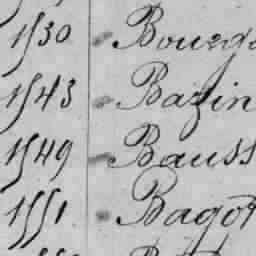 1530 Bourg
1543 Bazin
1549 Bauss
1551 Bagot